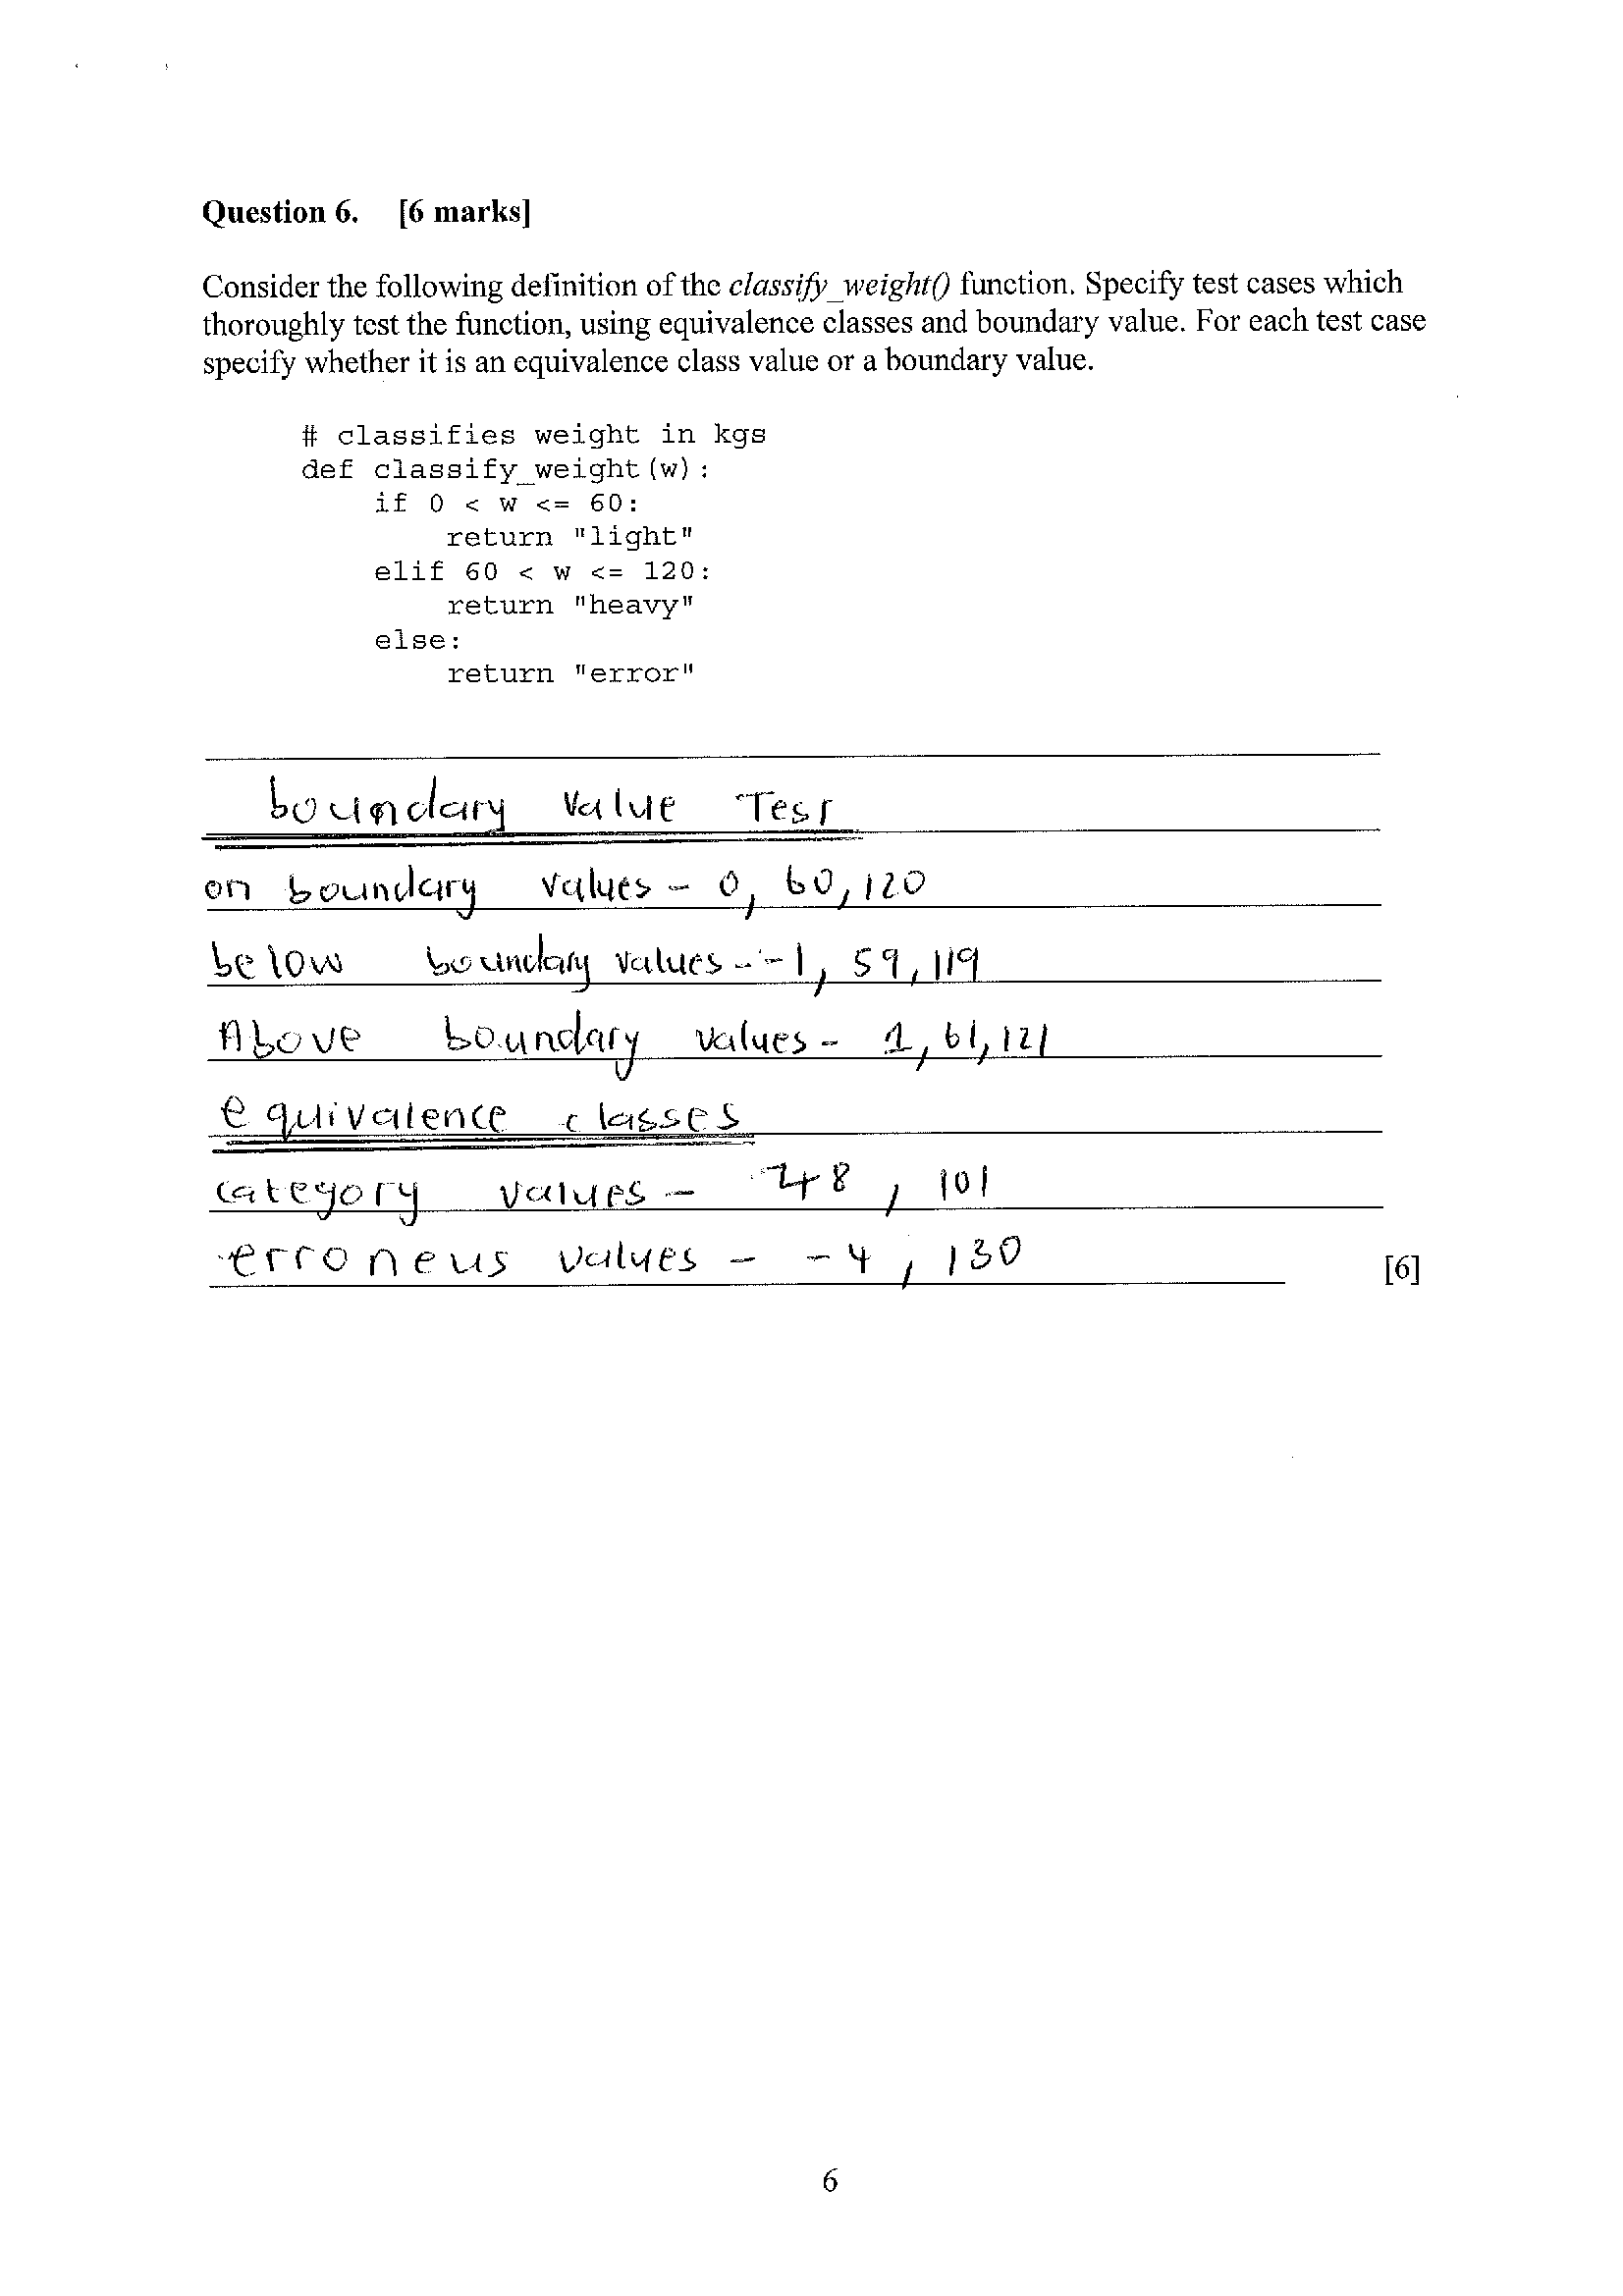 Question 6. [6 marks]
Consider the following definition of the classify_weight() function. Specify test cases which
thoroughly test the function, using equivalence classes and boundary value. For each test case
specify whether it is an equivalence class value or a boundary value.
# classifies weight in kgs
def classify_weight(w):
    if 0 < w <= 60:
        return "light"
    elif 60 < w <= 120:
        return "heavy"
    else:
        return "error"
boundary value Test
on boundary values - 0, 60, 120
below boundary values - -1, 59, 119
Above boundary values - 1, 61, 121
equivalence classes
category values - 48, 101
erroneus values - -4, 130
[6]
6